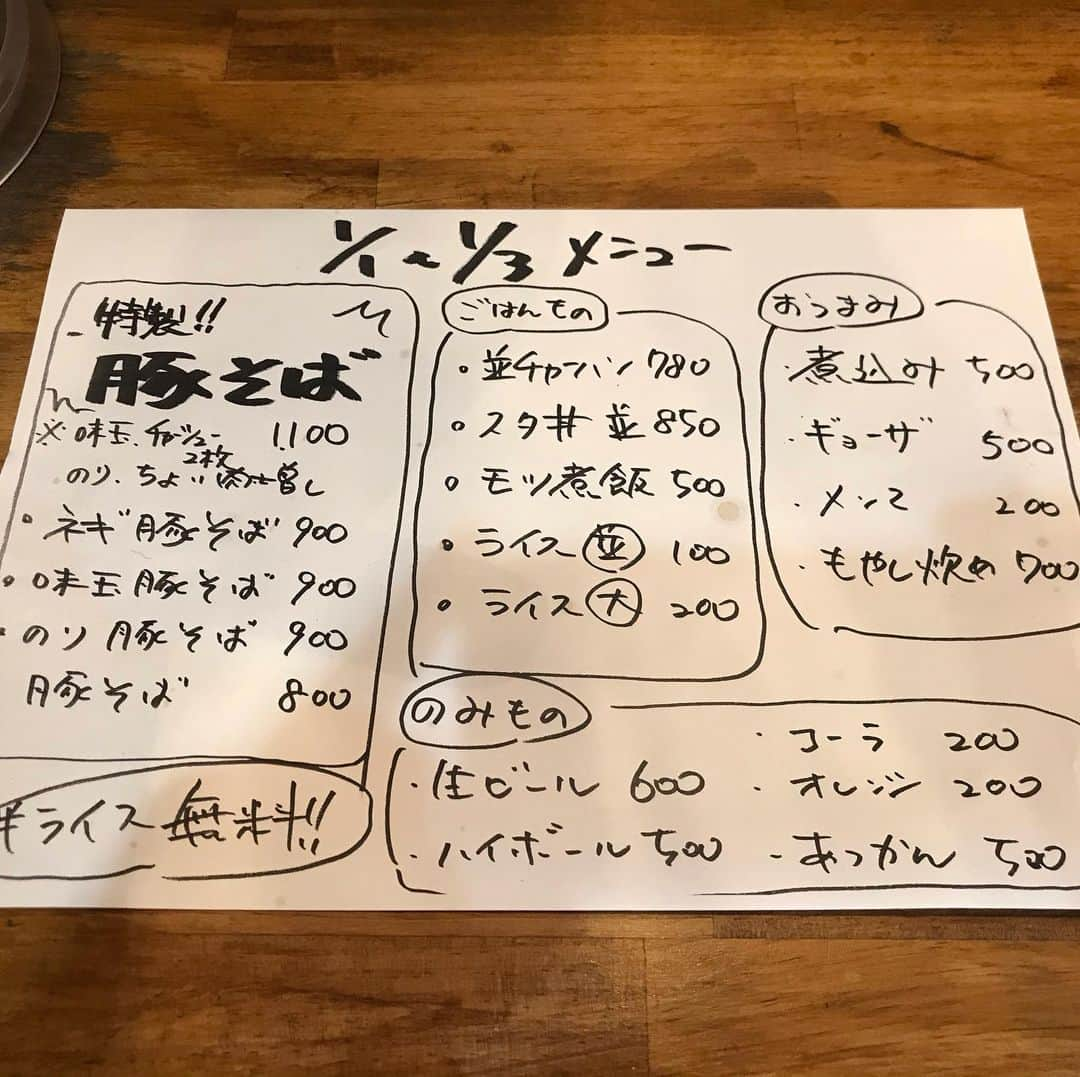 1/1〜1/3 メニュー
特製!!
豚そば
※味玉、チャーシュー2枚 1,100
のり、ちょい肉増し
・ネギ豚そば 900
・味玉豚そば 900
・のり豚そば 900
豚そば 800
半ライス無料!!
ごはんもの
・並チャーハン 780
・スタ丼 並 850
・モツ煮飯 500
・ライス 並 100
・ライス 大 200
おつまみ
・煮込み 500
・ギョーザ 500
・メンマ 200
・もやし炒め 700
のみもの
・生ビール 600
・ハイボール 500
・コーラ 200
・オレンジ 200
・あつかん 500